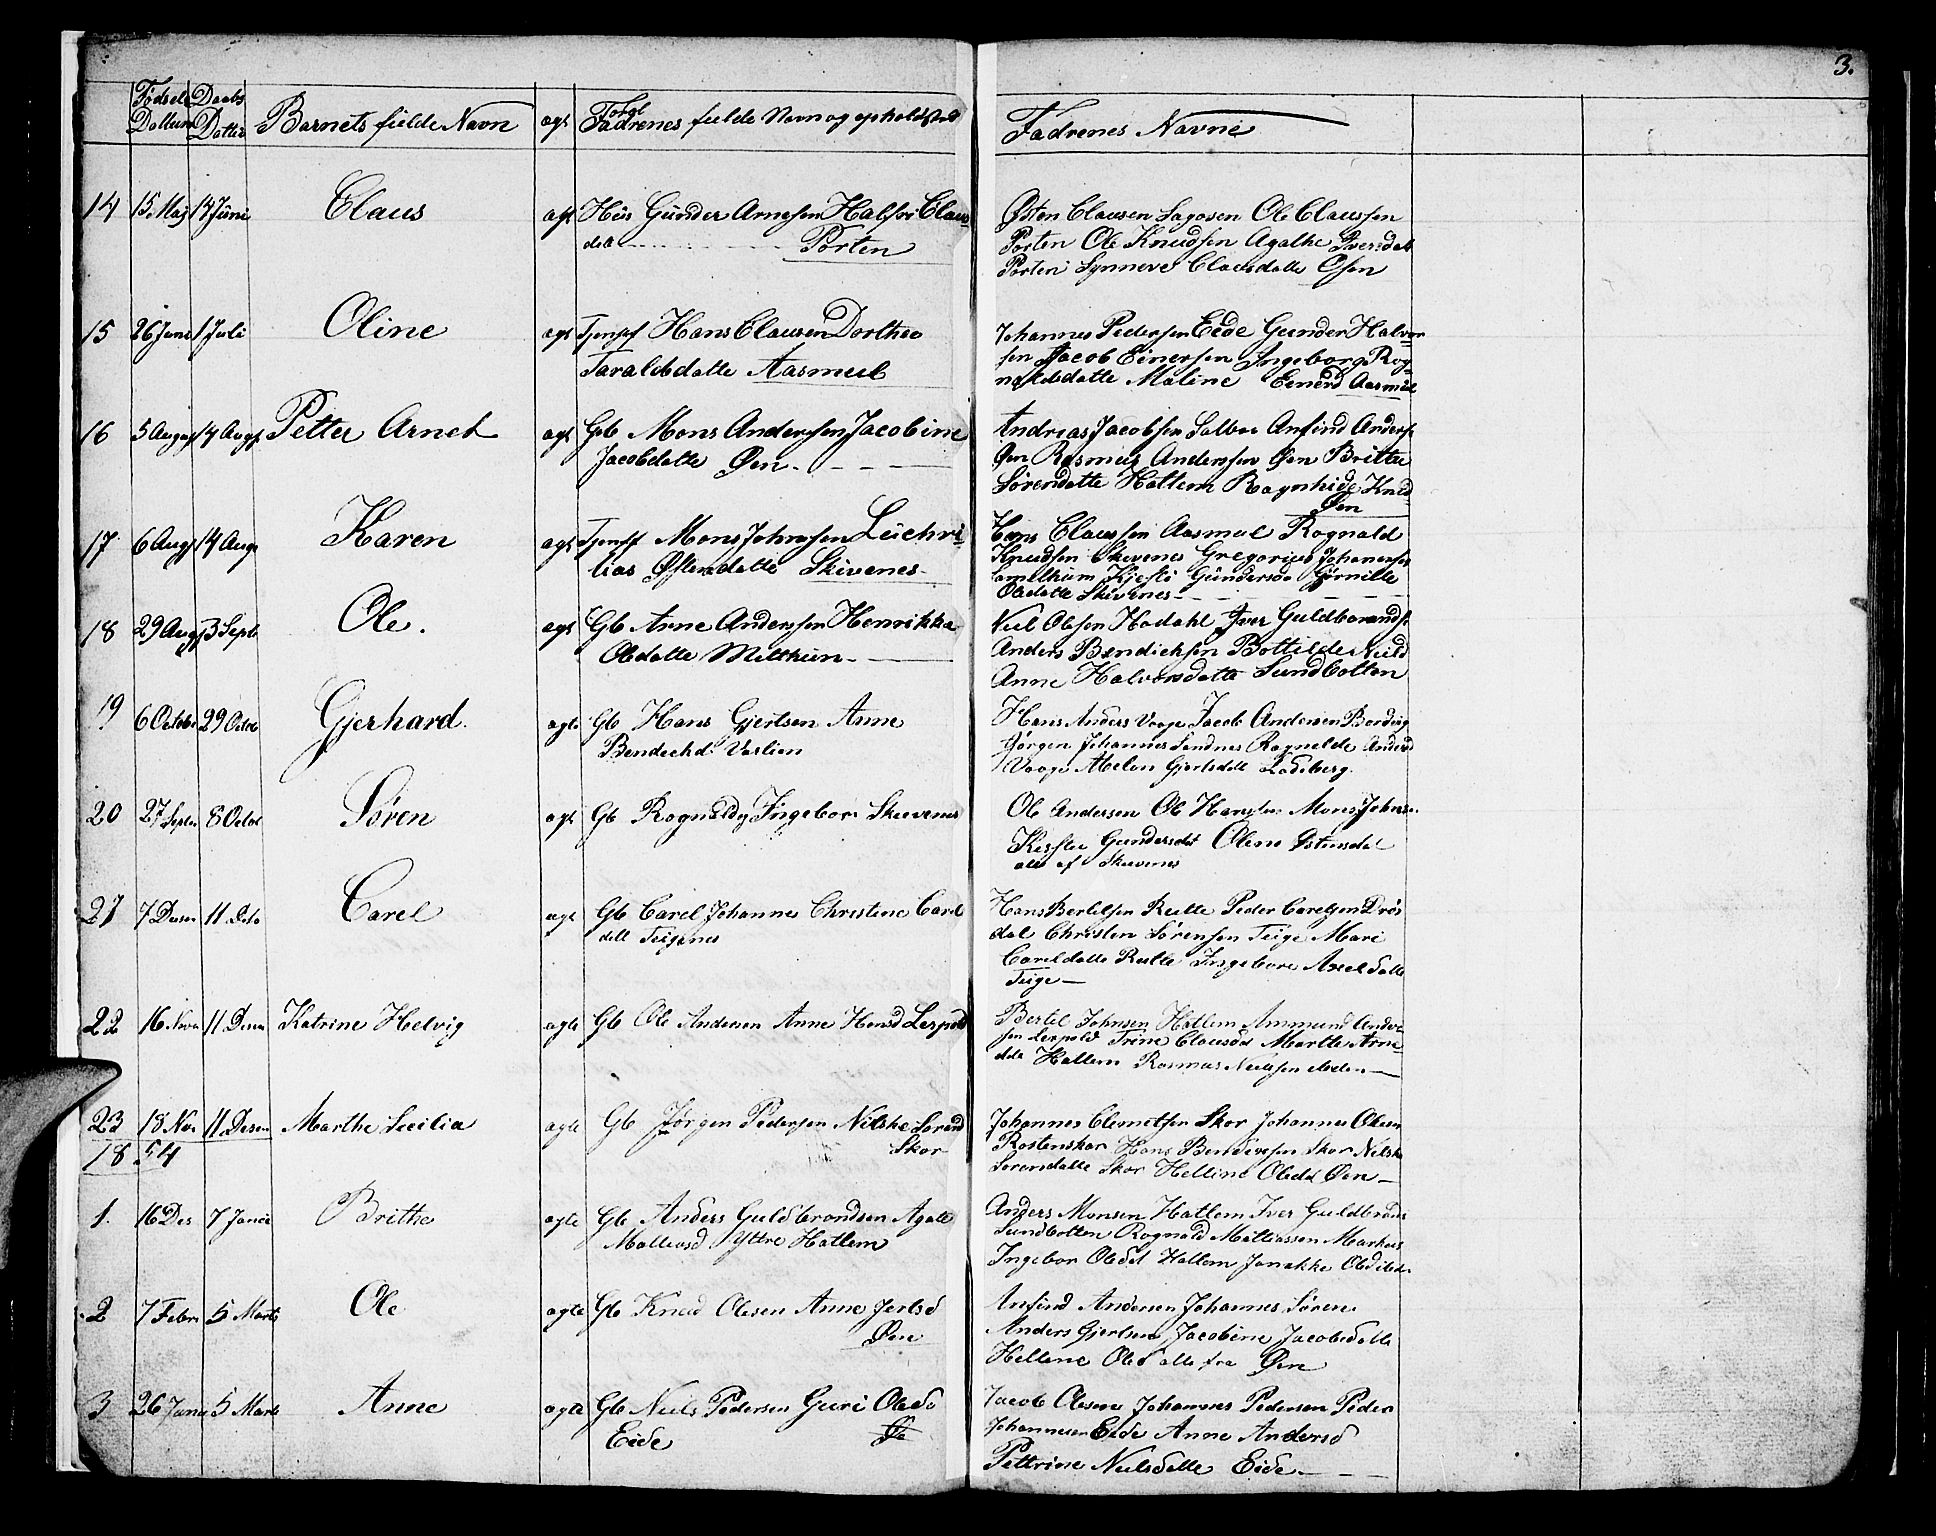 3.
Fødsels Daabs
Dattum Datter Barnets fulde Navn agt Forel Fadrenes fulde Navn og opholdsted Fadrenes Navne
14 15 Maj 14 Juni Claus agt Hüs Günder Arnesen Halfri Claus
datt Porten
Østen Clausen Sagosen Ole Claussen
Porten Ole Knudsen Agathe Iversdat
Porten Synneve Clausdatte Osen
15 26 Juni 1 Juli Oline agt Tjenss Hans Clausen Dorthea
Taraldsdatte Aasmul
Johannes Pedersen Eide Gunder Halvor
sen Jacob Einersen Ingeborg Rog
naldsdatte Maline Einerd Aasmul
16 5 August 14 Augs Petter Arnet agt Gb Mons Anderssen Jacobine
Jacobdatte Øen
Andreas Jacobsen Salboe Anfind Anders
Øen Rasmus Anderssen Øen Britte
Sørensdatte Hatlem Ragnhide Knud
Øen
17 6 Augs 14 Augs Karen agt Tjenss Mons Johnssen Luchri
lias Østensdatte Skivenes
Hans Claussen Aasmul Rognald
Knudsen Skivenes Gregorius Johanesen
Kjesti Gündersda
Olsdatte Skivenes
18 29 Augs 3 Sept Ole. agt Gb Arne Anderssen Henrikka
Olsdatte Melthün
Niel Olesen Hodahl Iver Guldbrands
Anders Bendichsen Bottilde Nield
Anne Halvorsdatte Sundbotten
19 6 Octobe 29 Octob Gjerhard. agte Gb Hans Gjertsen Anne
Bendechd. Varlien
Hans Anders Vaage Jacob Andersen Bordvig
Jørgen Johannes Sandnes Rognelde Andersd
Vaage Abelon Gjertsdatt Ladeberg.
20 27 Septe 8 Octob Søren agt Gb Rognald Ingebor Skivenes
Ole Andersen Ole Hansen Mons Johnse
Kistie Gundersdat Olene Østensdat
alle af Skivenes
21 7 Desem 11 Des Carel agt Gb Carel Johannes Christine Carel
datt Teigenes
Hans Bertelsen Rutle Peder Carelsen Drøs
dal Christen Sørensen Teige Mari
Careldatte Rutle Ingebore Axeldatte
Teige
22 16 Nove 11 Desem Katrine Helvig agte Gb Ole Andersen Anne Hansd Lerpold
Bertel Johnsen Hatlem Ammund Ander
sen Lerpold Trine Clausdat Marthe Arne
datt Hatlem Rasmus Nielsen
23 18 Nov 11 Desem Marthe Secilia agte Gb Jørgen Pedersen Nilske Sørend
Skor
Johannes Clemetsen Skor Johannes Olesen
Rostenskor Hans Bendixsen Skor Nilske
Sørensdatte Skor Helline Olsdat Øen
1854
1. 16 Des 7 Janua Brithe agte Gb Anders Guldbrandsen Agate
Matteasd Yttre Hatlem
Anders Monsen Hatlem Iver Guldbrans
Sundbotten Rognald Mattiassen Markus
Ingebor Olesdat Hatlem Janikke Olsd
2 7 Febru 5 Marts Ole agte Gb Knud Olesen Anne Jertsd
Øen
Anfind Andersen Johannes Søren
Anders Gjertsen Jacobine Jacobsdatte
Hellene Olesd alle fra Øen
3 26 Janua 5 Marts Anne agte Gb Niels Pedersen Guri Olesd
Eide
Jacob Olesen Johannes Pedersen Peder
Johannesen Eide Anne Andersd
Pettrine Nielsdatte Eide